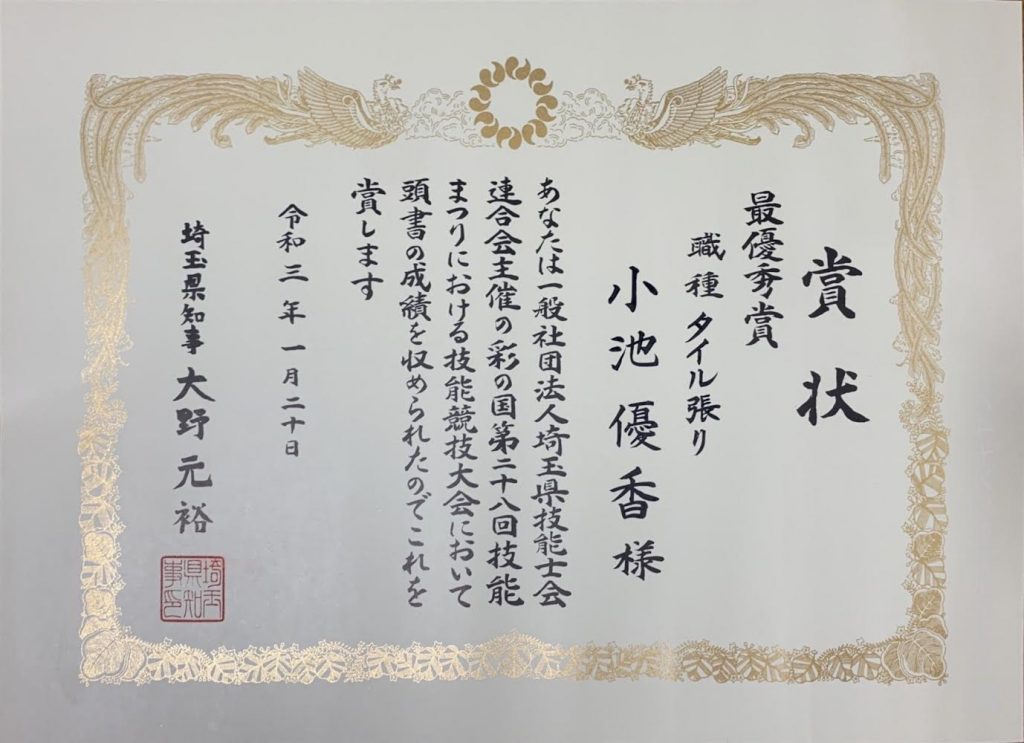 賞状
最優秀賞
職種 タイル張り
小池優香様
あなたは一般社団法人埼玉県技能士会
連合会主催の彩の国第二十八回技能
まつりにおける技能競技大会において
頭書の成績を収められたのでこれを
賞します
令和三年一月二十日
埼玉県知事 大野元裕
埼玉県知事印